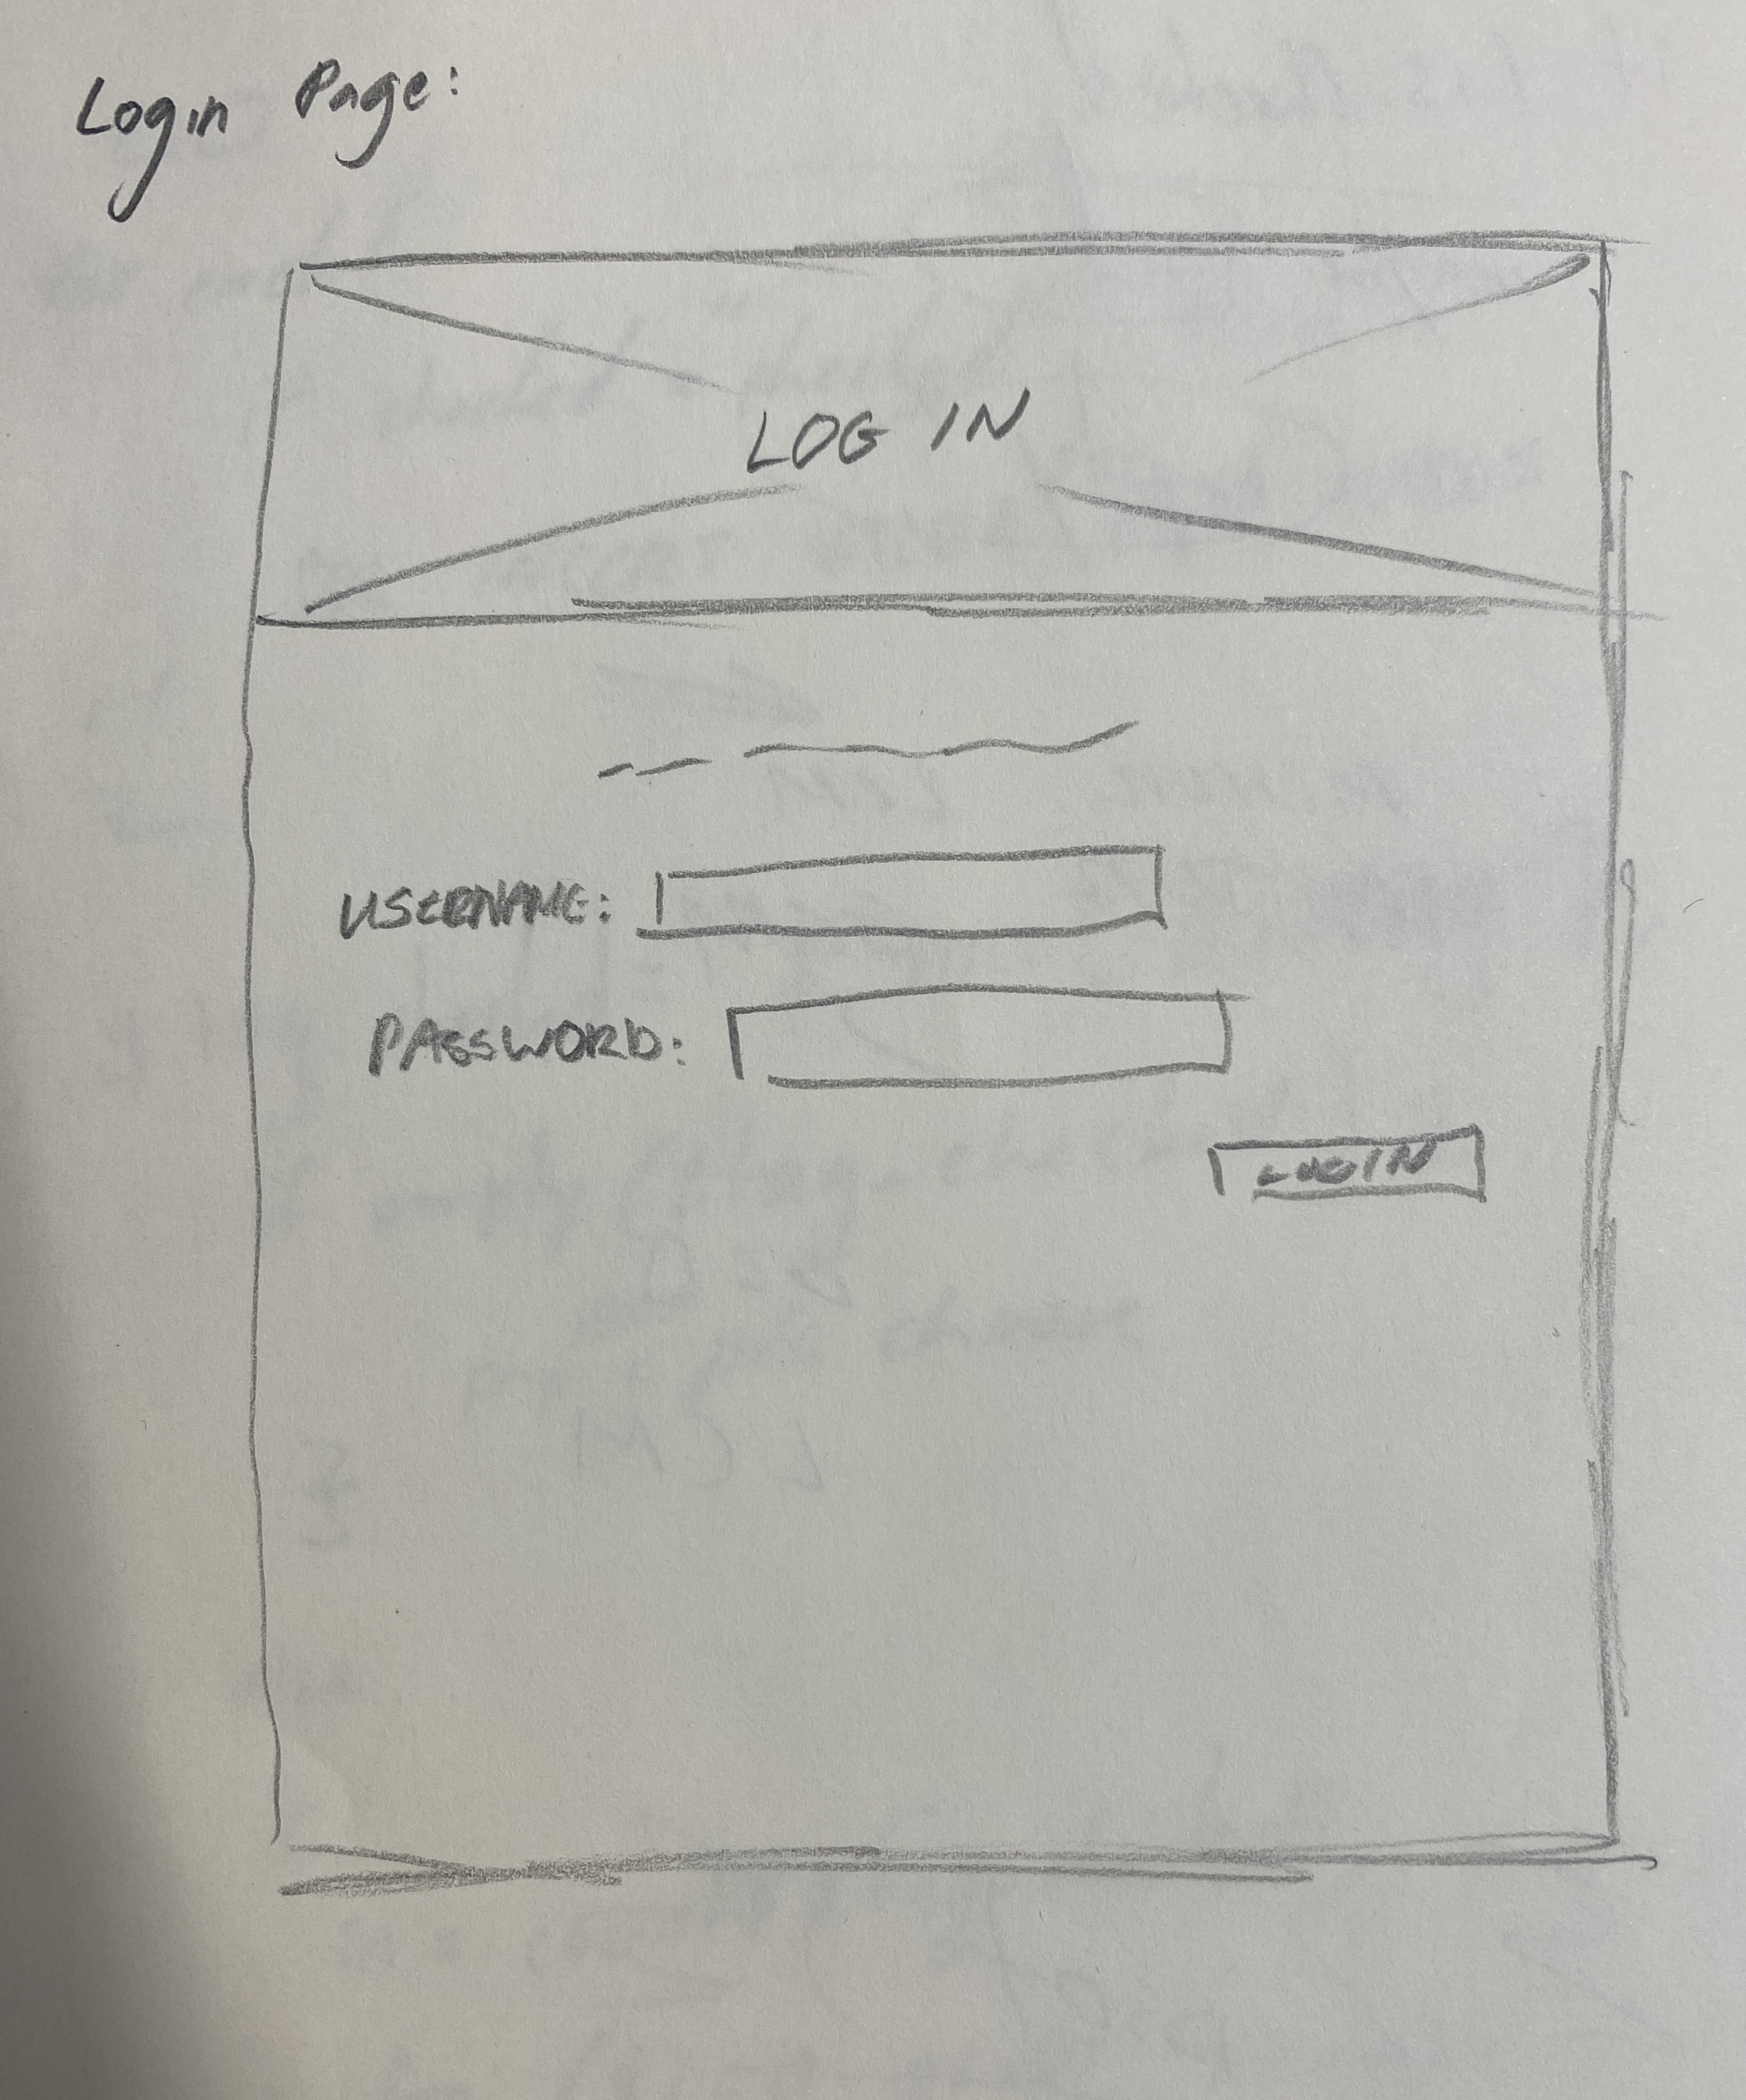 Login Page:
LOG IN
USERNAME:
PASSWORD:
LOGIN